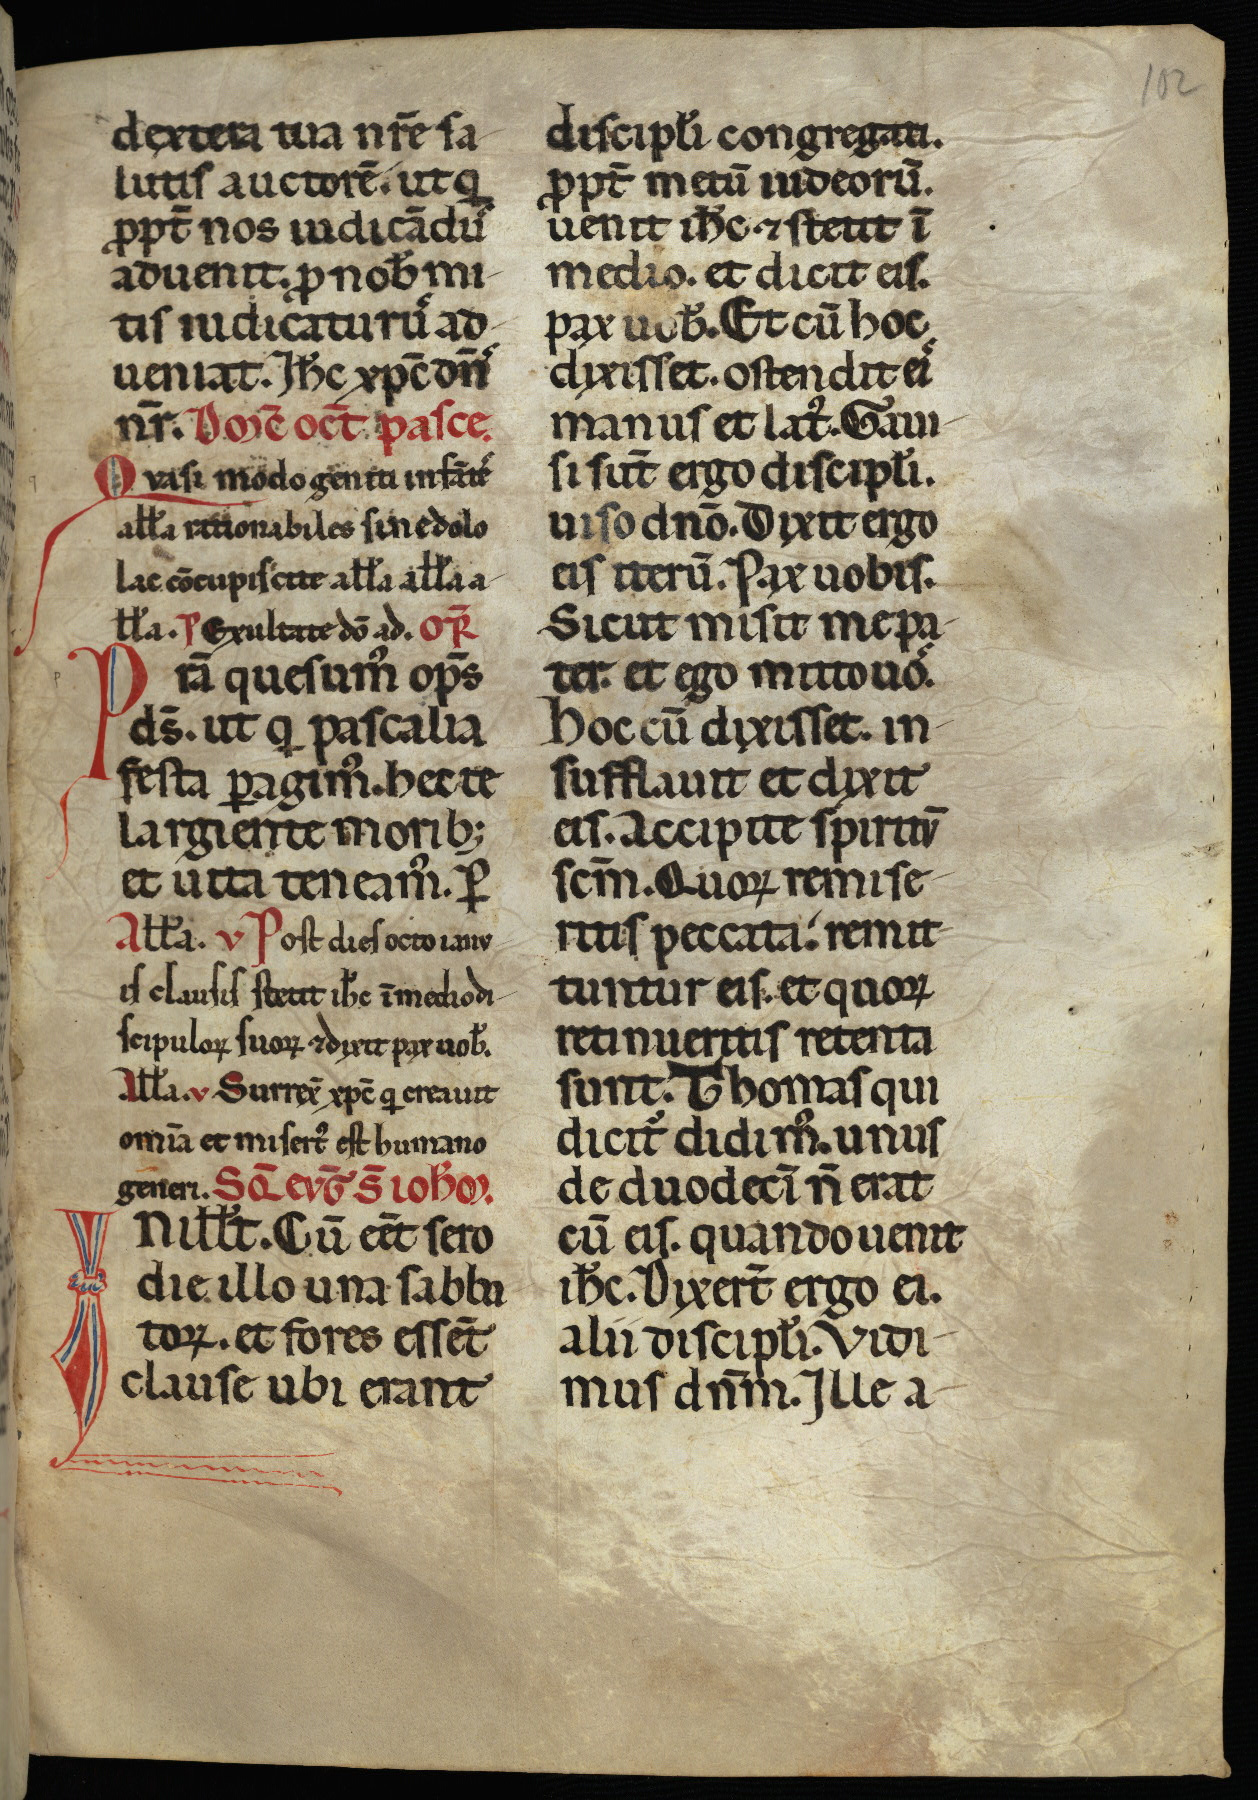 102
dextera tua nr̄e sa-
lutis auctorē. ut q
ꝓpt̄ nos iudicādū
aduenit. ꝓ nob̄ mi-
tis iudicaturꝰ ad-
ueniat. Ih̄c xp̄c dn̄s
nr̄. Dom̄c oct̄ pasce.
Quasi modo geniti infātes
all̄a rationabiles sine dolo
lac cōcupiscite all̄a all̄a a-
ll̄a. P̄ Exultate dō ad. OR̄
Prā quesumꝰ op̄s
ds̄. ut q pascalia
festa ꝑagimꝰ. hec te
largiente morib;
et uita teneamꝰ. P̄
All̄a. v Post dies octo ianu
is clausis stetit ih̄c ī medio di-
scipuloꝝ suoꝝ ⁊ dixit pax uob̄.
All̄a. v Surrex̄ xp̄c q creauit
omīa et misertꝰ est humano
generi. Sc̄d̄ euḡ s̄ ioh̄m.
In ill̄t. Cū eēt sero
die illo una sabba
toꝝ. et fores essēt
clause ubi erant
discipl̄i congregati.
ꝓpt̄ metū iudeorū.
uenit ih̄c ⁊ stetit ī
medio. et dicit eis.
pax uob̄. Et cū hoc
dixisset. ostendit eis
manus et latꝰ. Gaui-
si sūt ergo discipl̄i.
uiso dn̄o. Dixit ergo
eis iterū. Pax uobis.
Sicut misit me pa-
ter. et ego mitto uos.
hoc cū dixisset. in-
sufflauit et dixit
eis. Accipite spiritū
sc̄m. Quoꝝ remise-
ritis peccata: remit
tuntur eis. et quoꝝ
retinueritis retenta
sunt. Thomas qui
dicit̄ didimꝰ. unus
de duodecī n̄ erat
cū eis. quando uenit
ih̄c. Dixert̄ ergo ei.
alii discipl̄i. Vidi-
mus dn̄m. Ille a-